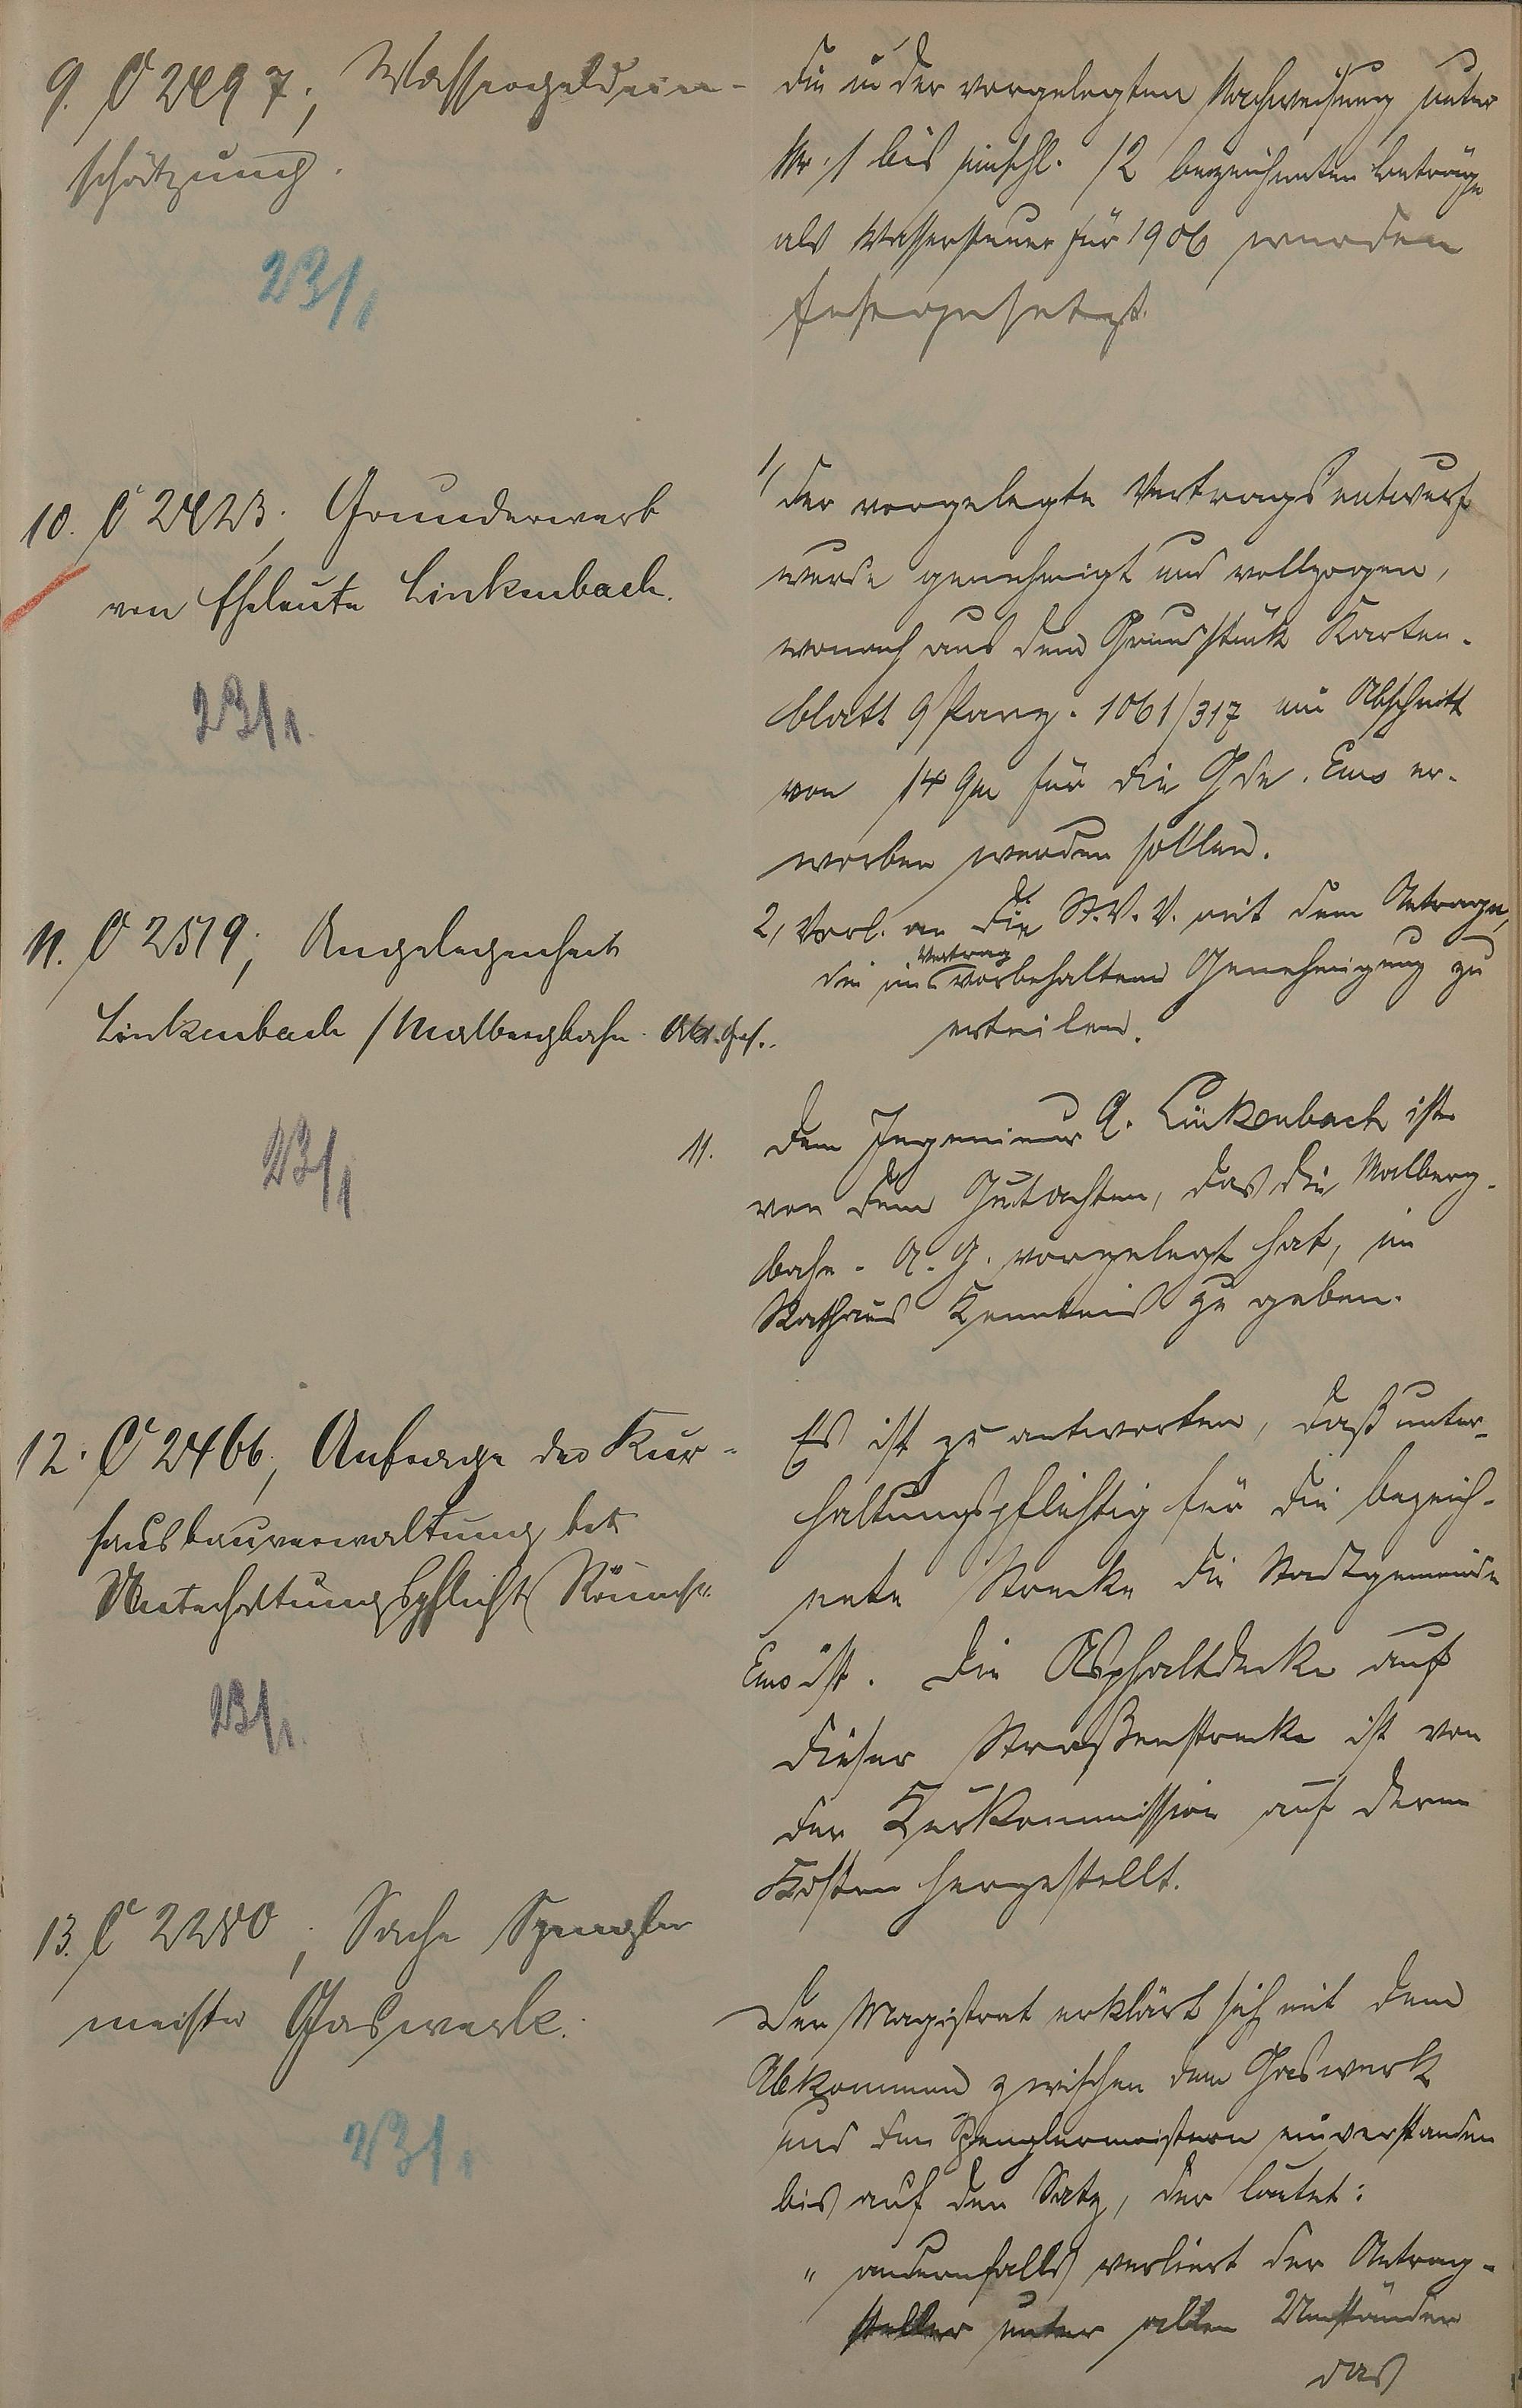 9. C 2497; Wassergeldein-
schätzung.
23/1
Die in der vorgelegten Nachweisung unter
Nr. 1 bis einschl. 12 bezeichneten Beträge
als Wassersteuer für 1906 wurden
festgesetzt.
10. C 2423; Grunderwerb
von Eheleute Linkenbach.
23/1.
1/ Der vorgelegte Vertragsentwurf
wurde genehmigt und vollzogen,
wonach aus dem Grundstück Karten-
blatt 9 Parz. 1061/317 ein Abschnitt
von 14 qm für die Gde. Ems er-
worben werden sollen.
2, Vorl. an die St.V.V. mit dem Antrage,
die im Vertrag vorbehaltene Genehmigung zu
erteilen.
11. C 2519; Angelegenheit
Linkenbach / Malbergbahn Akt. Ges..
23/1
11. Dem Ingenieur A. Linkenbach ist
von dem Gutachten, das die Malberg-
bahn-A.G. vorgelegt hat, im
Rathaus Kenntnis zu geben.
12. C 2466; Anfrage der Kur-
hausbauverwaltung betr.
Unterhaltungspflicht Römerstr.
23/1.
Es ist zu antworten, daß unter-
haltungspflichtig für die bezeich-
nete Strecke die Stadtgemeinde
Ems ist. Die Asphaltdecke auf
dieser Straßenstrecke ist von
der Kurkommission auf deren
Kosten hergestellt.
13. C 2280; Sache Spengler
meister Gaswerk.
23/1
Der Magistrat erklärt sich mit dem
Abkommen zwischen dem Gaswerk
und den Spenglermeistern einverstanden
bis auf den Satz, der lautet:
" andernfalls verliert der Antrag-
steller unter allen Umständen
das